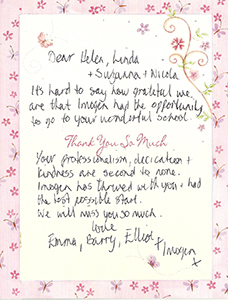 Dear Helen, Linda
+ Suzanna + Nicola
It's hard to say how grateful we
are that Imogen had the opportunity
to go to your wonderful school.
Thank You So Much
Your professionalism, dedication +
kindness are second to none.
Imogen has thrived with you + had
the best possible start.
We will miss you so much.
love
Emma, Barry, Elliot
+ Imogen
x